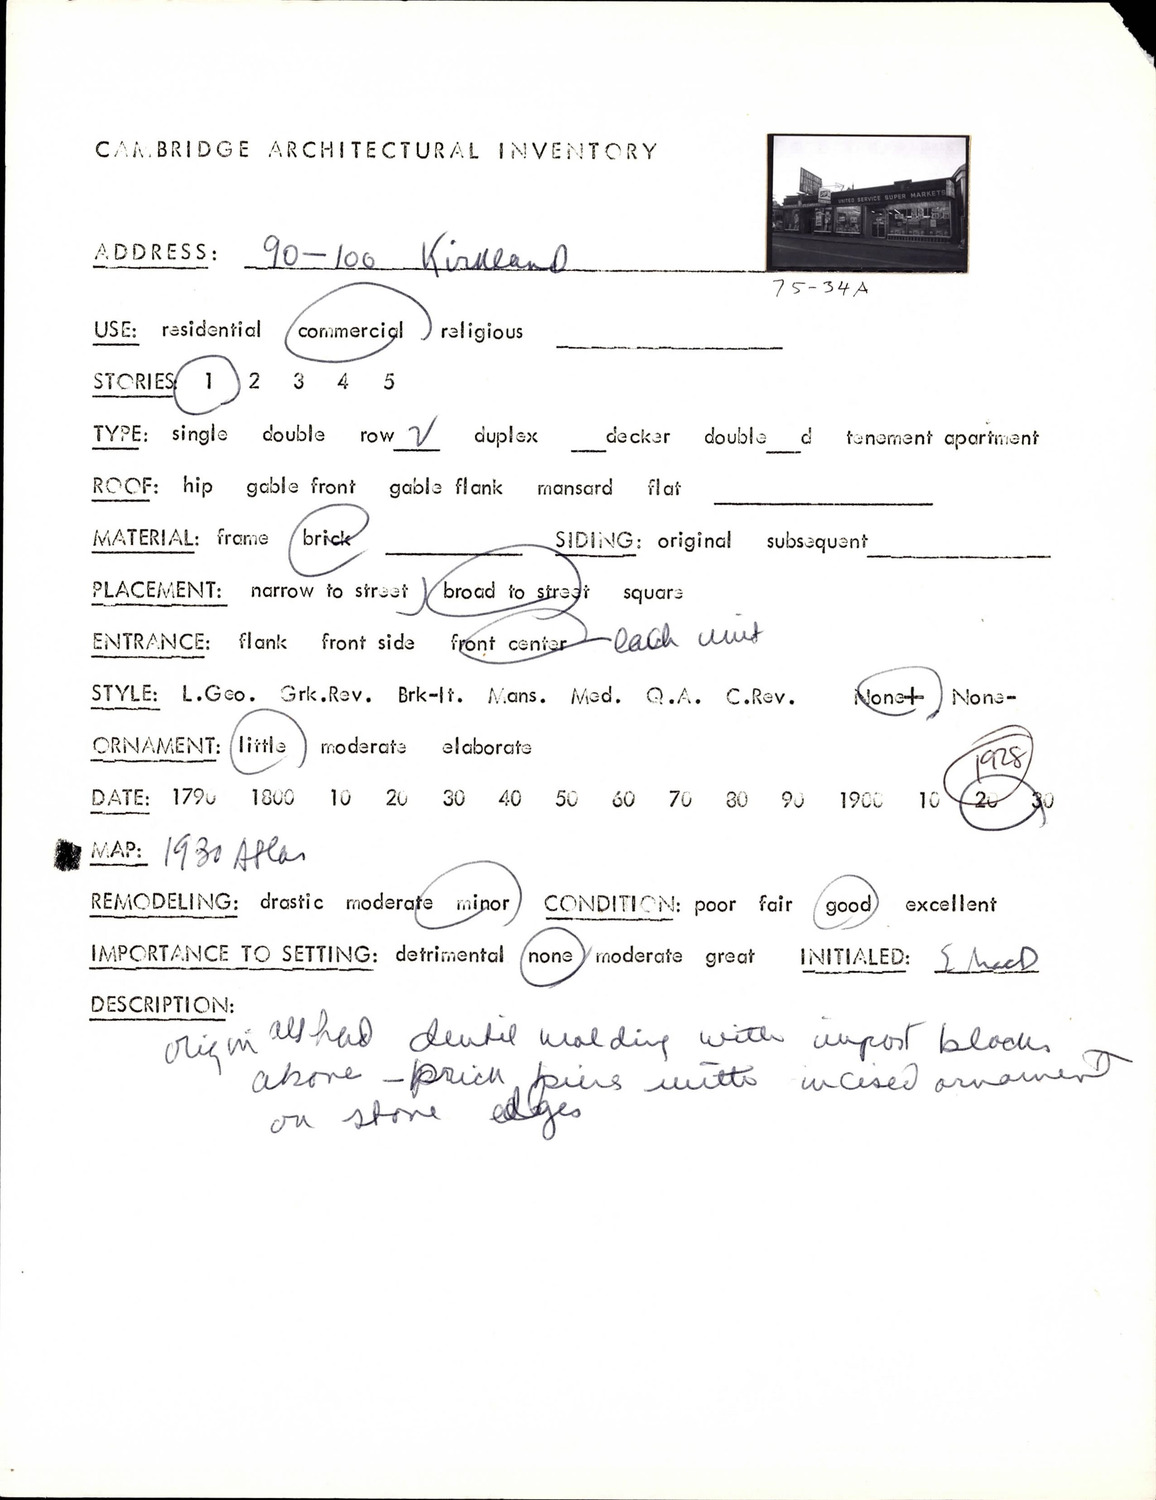 CAMBRIDGE ARCHITECTURAL INVENTORY
UNITED SERVICE SUPER MARKETS
ADDRESS: 90-100 Kirkland
75-34A
USE: residential commercial religious
STORIES 1 2 3 4 5
TYPE: single double row √ duplex __decker double__d tenement apartment
ROOF: hip gable front gable flank mansard flat
MATERIAL: frame brick SIDING: original subsequent
PLACEMENT: narrow to street broad to street square
ENTRANCE: flank front side front center each unit
STYLE: L.Geo. Grk.Rev. Brk-It. Mans. Med. Q.A. C.Rev. None+ None-
ORNAMENT: little moderate elaborate
1928
DATE: 1790 1800 10 20 30 40 50 60 70 80 90 1900 10 20 30
MAP: 1930 Atlas
REMODELING: drastic moderate minor CONDITION: poor fair good excellent
IMPORTANCE TO SETTING: detrimental none moderate great INITIALED: E MacD
DESCRIPTION:
origin all had dentil molding with impost blocks
above - brick piers with incised ornament
on stone edges